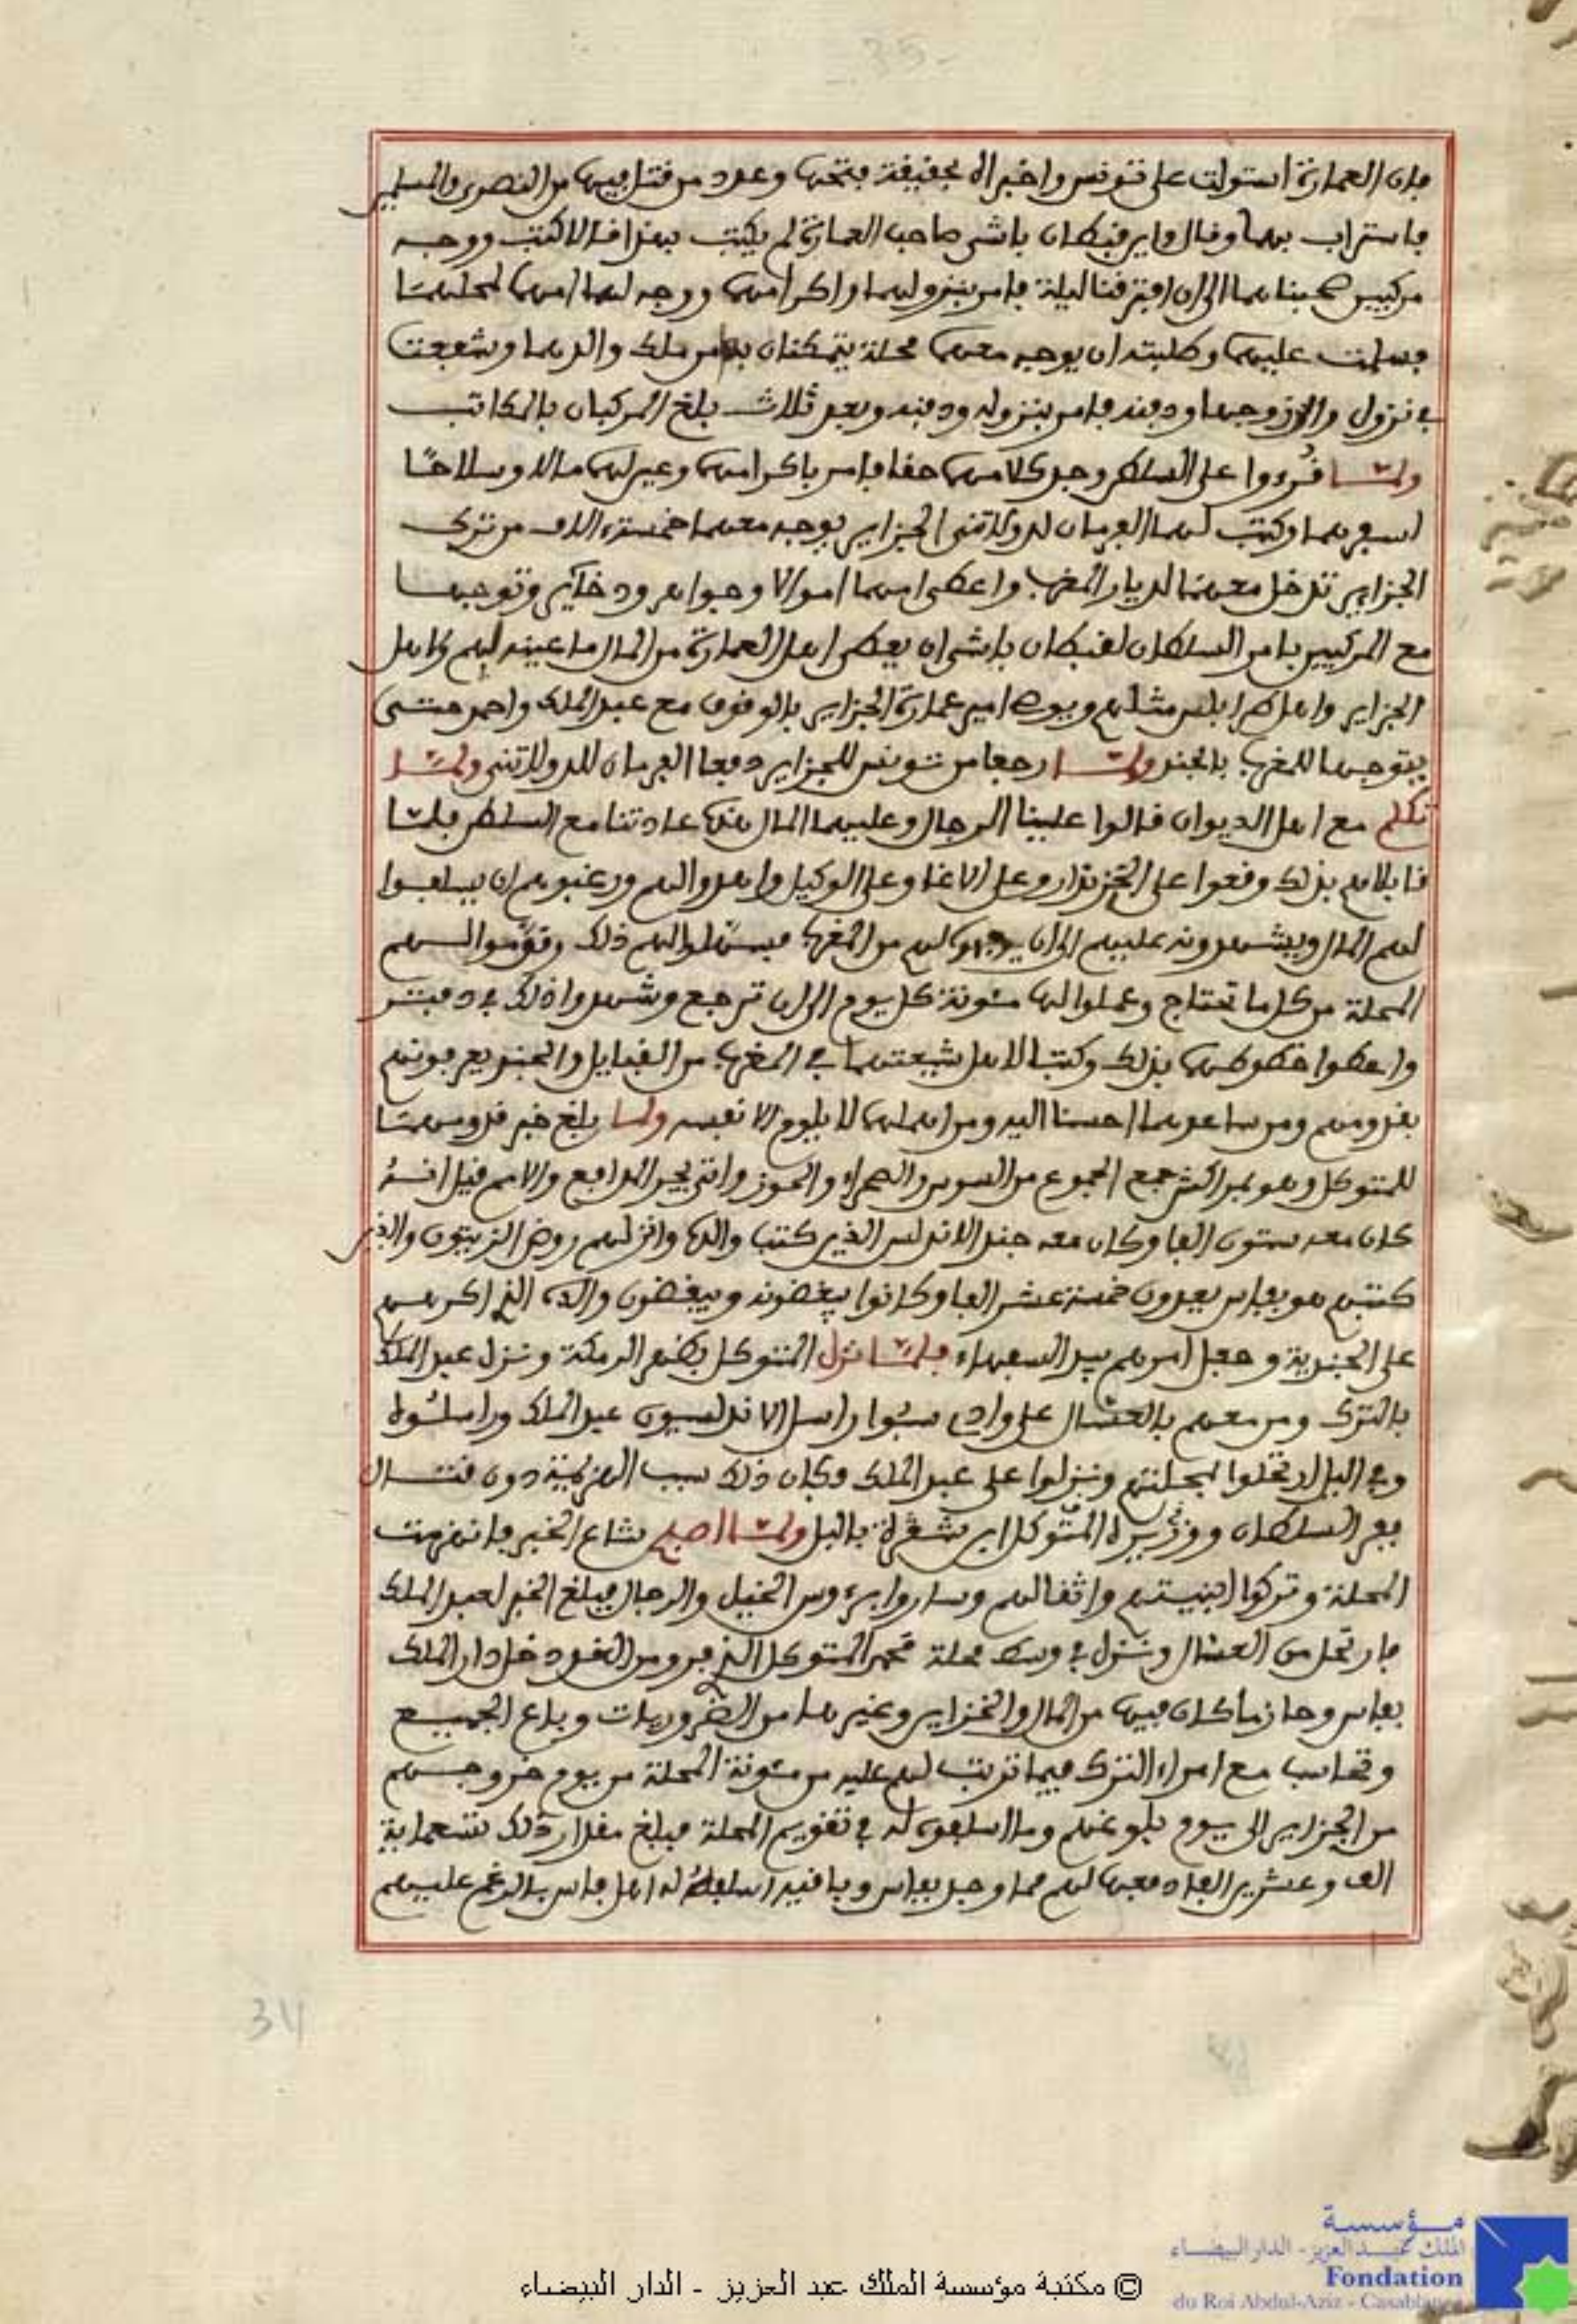 بان العمارة استولت على تونس واخبراه بحقيقة فتحها وعدد من قتل فيها من النصرى والمسلمين
فاستراب بهما وقال واين قبطان باشى صاحب العمارة لم يكتب بهذا فقالا كتب ووجه
مركبين صحبناهما الى ان افترقنا ليلة فامر بنزولهما واكرامهما ووجه لهما امهما لمحلهما
فسلمت عليهما وطلبته ان يوجه معهما محلة يتمكنان بها من ملك والدهما وشفعت
في نزول زوجها ودفنه فامر بنزوله ودفنه وبعد ثلاث بلغ المركبان بالمكاتب
ولما قرءوا على السلطان وجد كلامهما حقا فامر باكرامهما وعين لهما مالا وسلاحا
اسعفهما وكتب لهما الفرمان لدولاتنى الجزاير يوجه معهما خمسة ءالاف من ترك
الجزاير تدخل معهما لديار المغرب واعطى امهما اموالا وجواهر وذخاير وتوجها
مع المركبين بامر السلطان لقبطان باشى ان يعطى اهل العمارة من المال ما عينه لهم ولاهل
الجزاير واهل طرابلس مثلهم ويوصى امير عمارة الجزاير بالوقوف مع عبد الملك واحمد حتى
يتوجها للمغرب بالجند ولما رجعا من تونس للجزاير دفعا الفرمان للدولاتنى ولما
تكلم مع اهل الديوان قالوا علينا الرجال وعليهما المال هذه عادتنا مع السلطان فلما
قابلاهم بذلك وقعوا على الخزندار وعلى الاغا وعلى الوكيل واهدوا لهم ورغبوهم ان يسلفوا
لهم المال ويشهدونه عليهم الى ان يوجهوه لهم من المغرب فبسطوا لهم ذلك وقوموا لهم
المحلة من كل ما تحتاج وعملوا لها مئونة كل يوم الى ان ترجع وشهدوا ذلك في دفتر
واعطوا خطوطهما بذلك وكتبا لاهل شيعتهما في المغرب من القبايل والجند يعرفونهم
بقدومهم ومن ساعدهما احسنا اليه ومن اهملهما لا يلوم الا نفسه ولما بلغ خبر قدومهما
للمتوكل وهو بمراكش جمع الجموع من السوس والصحراء والحوز واتى بجر المدافع والامم قيل انه
كان معه ستون الفا وكان معه جند الاندلس الذين كتب والده وانزلهم روض الزيتون والذين
كتبهم هو بفاس يعدون خمسة عشر الفا وكانوا يبغضونه ويبغضون والده الذي اكرههم
على الجندية وجعل امرهم بيد السفهاء فلما نزل المتوكل بخضر الرمكة ونزل عبد الملك
بالترك ومن معهم بالعشال على وادي سبوا راسل الاندلسيون عبد الملك وراسلوه
وفي اليل ارتحلوا لمحلتهم ونزلوا على عبد الملك وكان ذلك سبب الهزيمة دون قتال
ففر السلطان ووزيره المتوكل ابن شقرا باليل ولما اصبح شاع الخبر فانهزمت
المحلة وتركوا ابنيتهم واثقالهم وساروا برءوس الخيل والرجال فبلغ الخبر لعبد الملك
فارتحل من العشال ونزل في وسط محلة محمد المتوكل الذي فر ومن الغد دخل دار الملك
بفاس وحاز ما كان فيها من المال والخزاين وغيرها من الضروريات وباع الجميع
وتحاسب مع امراء الترك فيما ترتب لهم عليه من مئونة المحلة من يوم خروجهم
من الجزاير الى يوم بلوغهم وما اسلفوه له في تقويم المحلة فبلغ مقدار ذلك تسعماية
الف وعشرين الفا دفعها لهم مما وجد بفاس وباقيه اسلفه له اهل فاس بالرغم عليهم
34
© مكتبة مؤسسة الملك عبد العزيز - الدار البيضاء
مؤسسة
الملك عبد العزيز - الدار البيضاء
Fondation
du Roi Abdul-Aziz - Casablanca